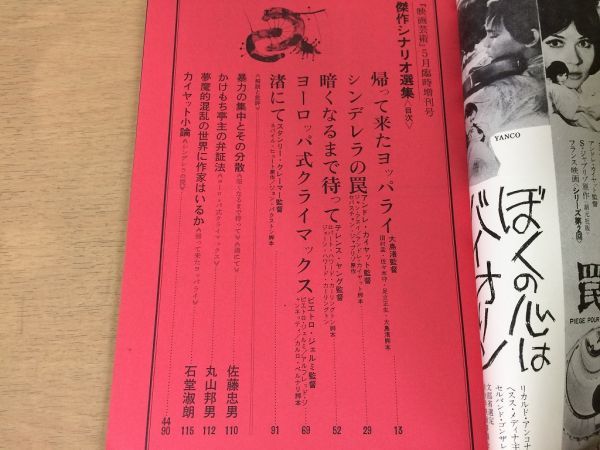 『映画芸術』5月臨時増刊号
傑作シナリオ選集〈目次〉
帰って来たヨッパライ
大島渚監督
田村孟・佐々木守・足立正生・大島渚脚本
13
シンデレラの罠
アンドレ・カイヤット監督
29
暗くなるまで待って
テレンス・ヤング監督
52
ヨーロッパ式クライマックス
ピエトロ・ジェルミ監督
69
渚にて
スタンリー・クレーマー監督
91
暴力の集中とその分散〈暗くなるまで待って〉〈渚にて〉
佐藤忠男
110
かけもち亭主の弁証法〈ヨーロッパ式クライマックス〉
丸山邦男
112
夢魔的混乱の世界に作家はいるか〈帰って来たヨッパライ〉
石堂淑朗
115
カイヤット小論〈シンデレラの罠〉
44
90
YANCO
ぼくの心は
バイオリン
リカルド・アンコナ
アンドレ・カイヤット監督
S・ジャプリゾ原作
フランス映画
罠
PIEGE POUR